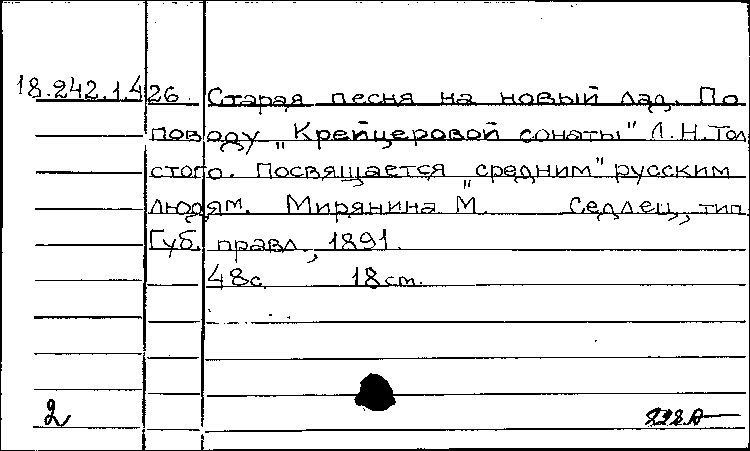 18.242.1.426. Старая песня на новый лад. По
поводу „Крейцеровой сонаты" Л.Н.Тол
стого. Посвящается „средним" русским
людям. Мирянина М. Седлец, тип.
Губ. правл., 1891.
48с. 18см.
2